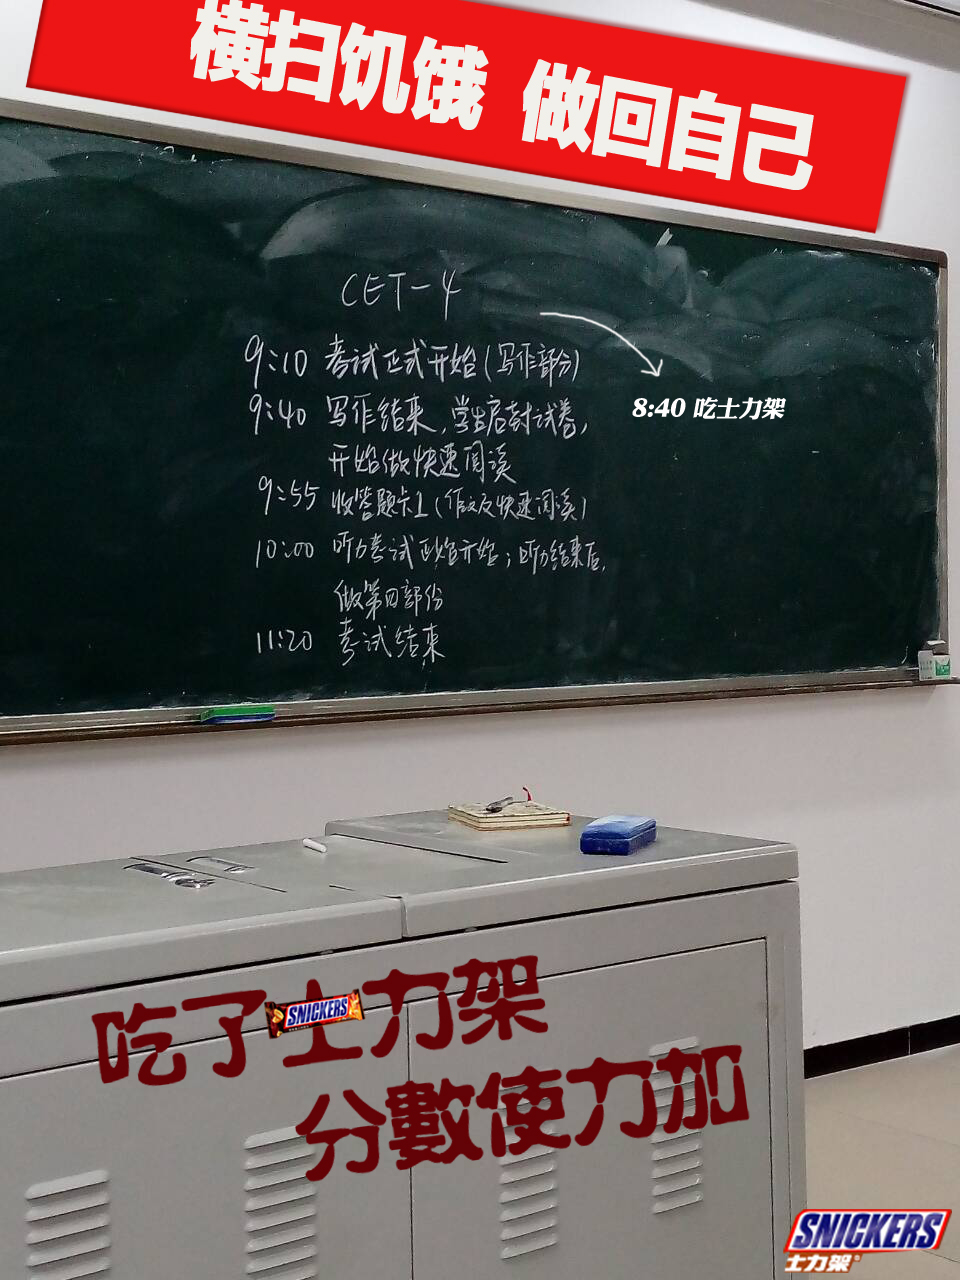 横扫饥饿 做回自己
CET-4
9:10 考试正式开始(写作部分)
8:40 吃士力架
9:40 写作结束,学生启封试卷,
开始做快速阅读
9:55 收答题卡1(作文及快速阅读)
10:00 听力考试正始开始;听力结束后,
做第四部份
11:20 考试结束
吃了士力架
SNICKERS
分數使力加
SNICKERS
士力架